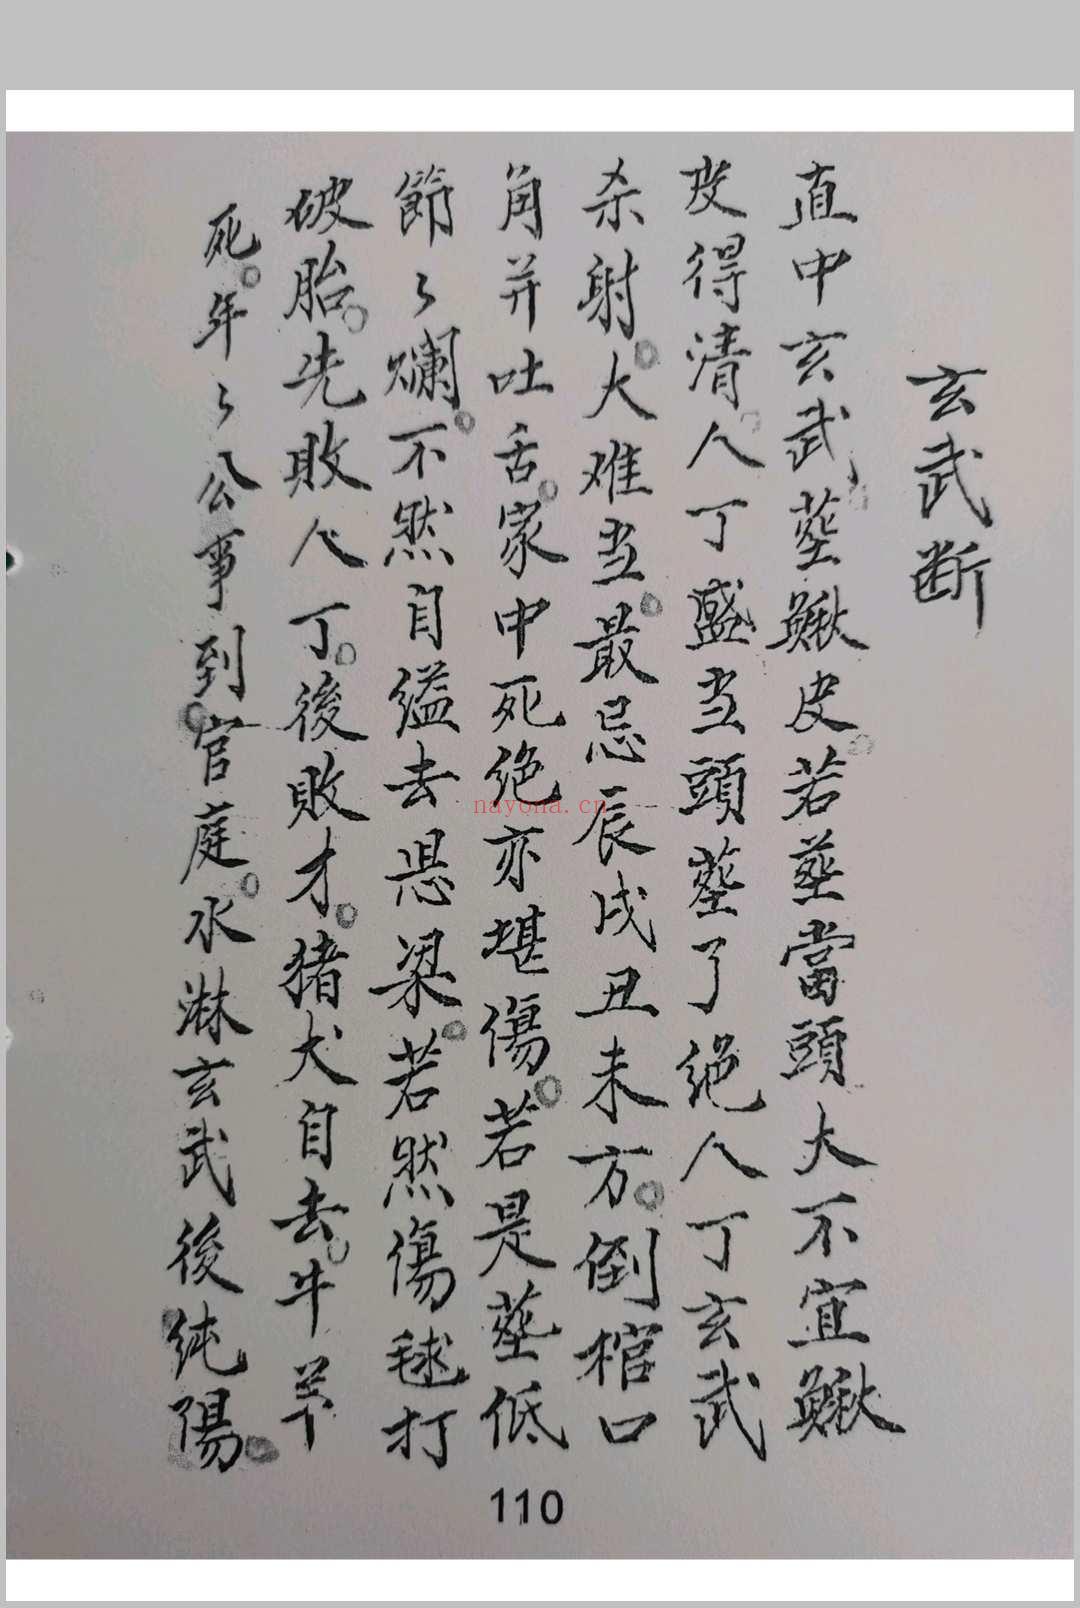 玄武断
直中玄武塟鰍皮若塟當頭大不宜鰍
皮得清人丁盛当頭塟了绝人丁玄武
杀射大难当最忌辰戌丑未方倒棺口
角并吐舌家中死绝亦堪傷若是塟低
節々爛不然自缢去悬梁若然傷毬打
破胎先敗人丁後敗才猪犬自去牛羊
死年々公事到官庭水淋玄武後纯陽
110
nayona.cn